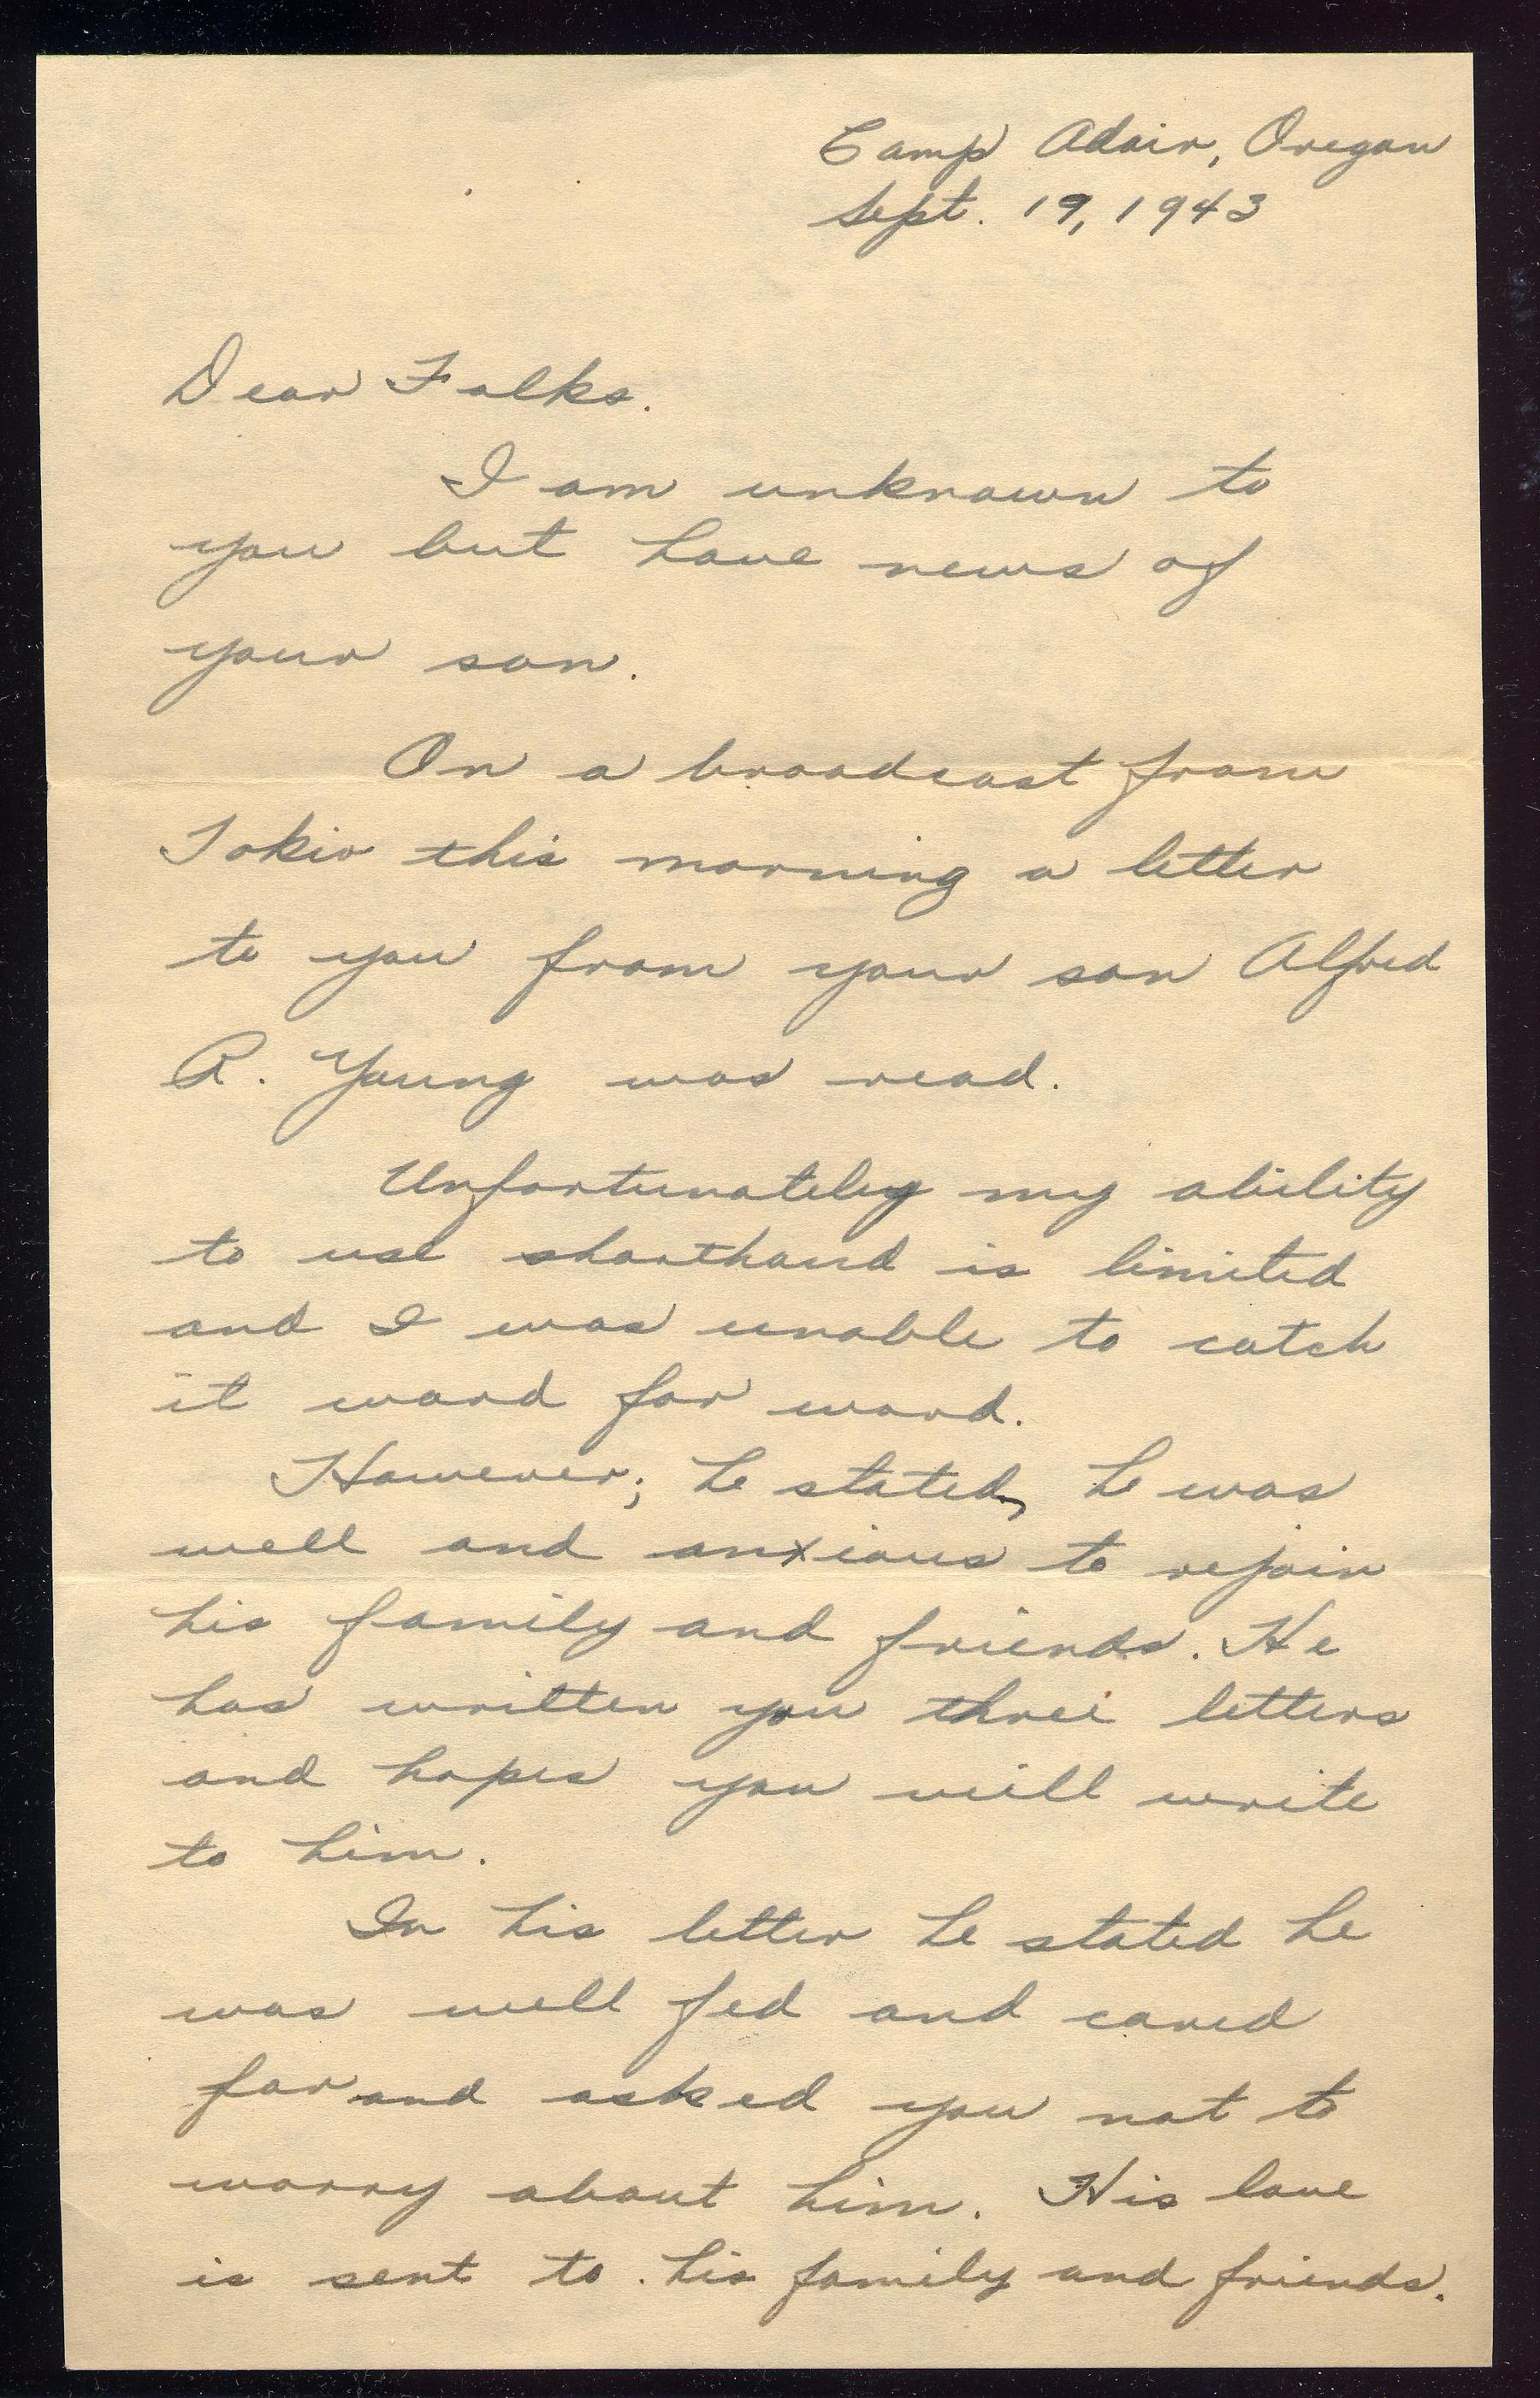 Camp Adair, Oregon
Sept. 19, 1943
Dear Folks.
I am unknown to
you but have news of
your son.
On a broadcast from
Tokio this morning a letter
to you from your son Alfred
R. Young was read.
Unfortunateley my ability
to use shorthand is limited
and I was unable to catch
it word for word.
However; he stated, he was
well and anxious to rejoin
his family and friends. He
has written you three letters
and hopes you will write
to him.
In his letter he stated he
was well fed and cared
for and asked you not to
worry about him. His love
is sent to his family and friends.